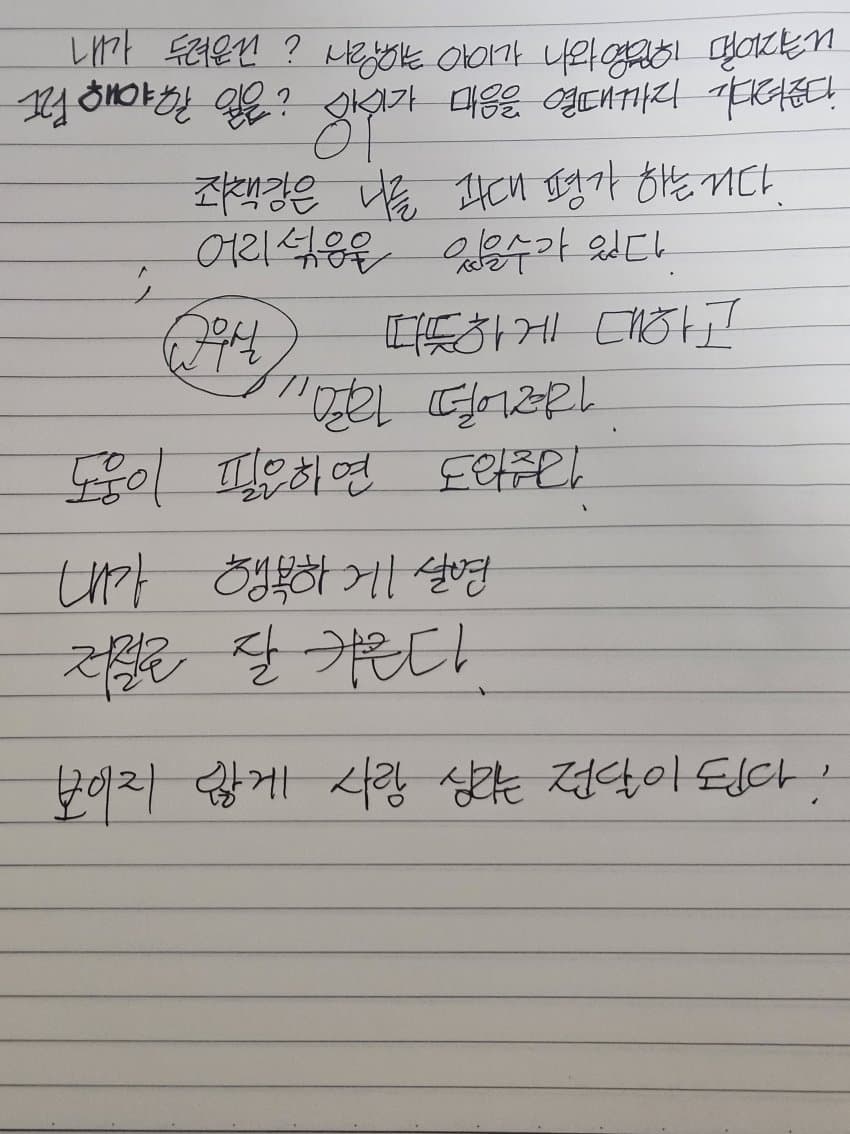 내가 두려운건? 사랑하는 아이가 나와 영원히 멀어지는거
그럼 해야할 일은? 아이가 마음을 열때까지 기다려준다.
이
죄책감은 나를 과대 평가 하는거다.
어리석음을 있을수가 있다.
따뜻하게 대하고
멀리 떨어져라.
도움이 필요하면 도와줘라.
내가 행복하게 살면
저절로 잘 키운다.
보이지 않게 사랑 전달이 된다!